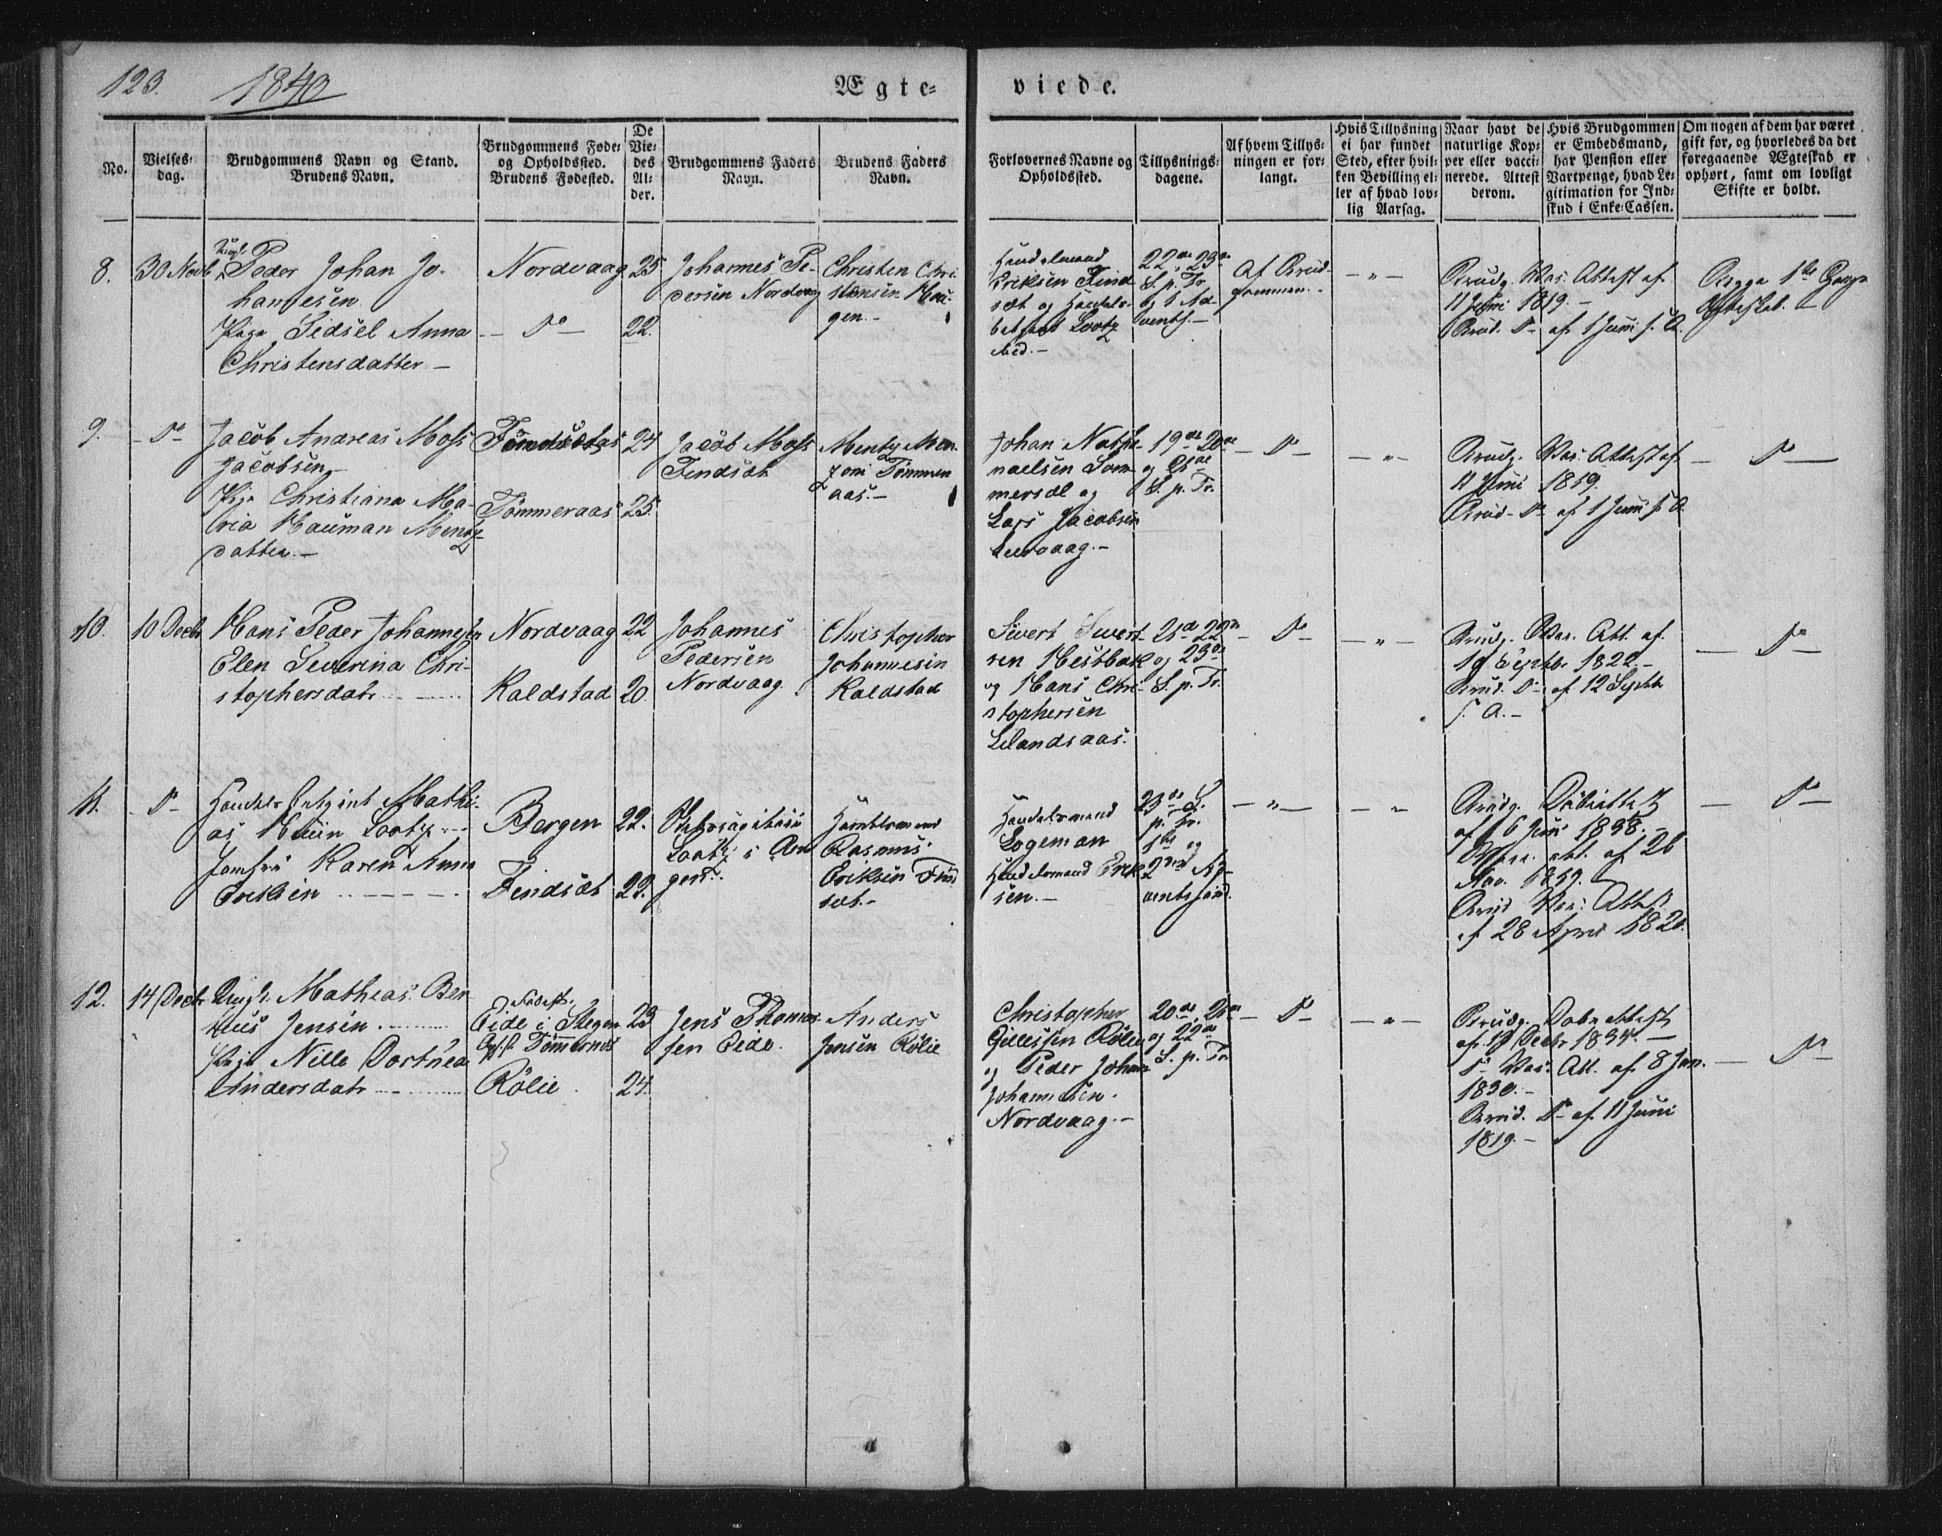 123. 1840
Ægte- viede.
No.
Vielses-
dag.
Brudgommens Navn og Stand.
Brudens Navn.
Brudgommens Føde-
og Opholdssted.
Brudens Fødested.
De
Vie-
des
Al-
der.
Brudgommens Faders
Navn.
Brudens Faders
Navn.
Forlovernes Navne og
Opholdssted.
Tillysnings-
dagene.
Af hvem Tillys-
ningen er for-
langt.
Hvis Tillysning
ei har fundet
Sted, efter hvil-
ken Bevilling el-
ler af hvad lov-
lig Aarsag.
Naar havt de
naturlige Kop-
per eller vacci-
nerede. Attest
derom.
Hvis Brudgommen
er Embedsmand,
har Pension eller
Vartpenge, hvad Le-
gitimation for Ind-
skud i Enke-Cassen.
Om nogen af dem har været
gift før, og hvorledes da det
foregaaende Ægteskab er
ophørt, samt om lovligt
Skifte er holdt.
8.
30 Novb
Ungk. Peder Johan Jo-
hannesen
Pige Sidsel Anna
Christensdatter
Nordvaag
Do
25
22.
Johannes Pe-
dersen Nordvaag
Christen Chri-
stensen
gen.
Handelsmand
Eriksen Find
sæt og Handels-
Lootz
22de 23de
S. p. Tr.
og 1 Ad-
vents.
Af Brud-
gommen.
"
Brudg. Vac. Attest af
11 Juni 1819.
Brud. Do af 1 Juni s. A.
Begge 1ste Gangs
Ægteskab.
9.
Do
Jacob Andreas Moss
Jacobsen
Pige Christiana Ma-
ria Hauman Mentz-
datter.
Findsæt
Tømmeraas
24
25
Jacob Moss
Findsæt
Mentz
Tømmer
aas.
Johan Natha-
naelsen Som-
mersæl og
Lars Jacobsen
Leervaag.
19de 20de
og 21de
S. p. Tr.
Do
"
Brudg. Vac. Attest af
11 Juni 1819.
Brud. Do af 1 Juni s. A
Do
10.
10 Decbr
Hans Peder Johannesen
Elen Severina Chri-
stophersdatr
Nordvaag
Kaldstad
22
20.
Johannes
Pedersen
Nordvaag
Christopher
Johannesen
Kaldstad
Sivert Sivert-
sen Hestbak
og Hans Chri-
stophersen
Lelandsaas.
21de 22de
og 23de
S. p. Tr.
Do
"
Brudg. Vac. Att. af
19 Septbr 1820.
Brud. Do af 12 Septbr
s. A.
Do
11.
Do
Handels Mathi-
as Lootz
Jomfru Karen Anna
Eriksen
Bergen
Findsæt
22.
22.
Lootz i Ber
gen.
Handelsmand
Rasmus
Eriksen Find
sæt
Handelsmand
Logeman
Handelsmand Erik-
sen.
23de S.
p. Tr.
1ste og
2den Ad-
ventssønd.
"
"
Brudg. Døbeattest
af 16 Juni 1838.
Vacc. att. af 26
Nov. 1819.
Brud. Vac. Attest
af 28 April 1820.
Do
12.
14 Decbr
Ungk. Mathias Ber
Jensen
Pige Nille Dorthea
Andersdatr
Fødest.
Eide i Stegen
Tømmernes
Rølie
23
24.
Jens Thomas-
sen Eide.
Anders
Jensen Rølie
Christopher
Gillessen Rølie
og Peder Johan
Johannesen
Nordvaag.
20de, 21de
og 22de
S. p. Tr.
Do
"
Brudg. Døbeattest
af 19 Decbr 1834.
Do Vac. Att. af 8 Jan.
1830.
Brud. Do af 11 Juni
1819.
Do